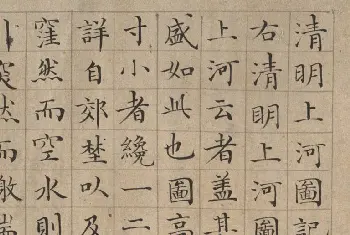 清明上河圖記
右清明上河圖
上河云者蓋其
盛如此也圖高
寸小者纔一二
詳自郊埜以及
窪然而空水則
突然而